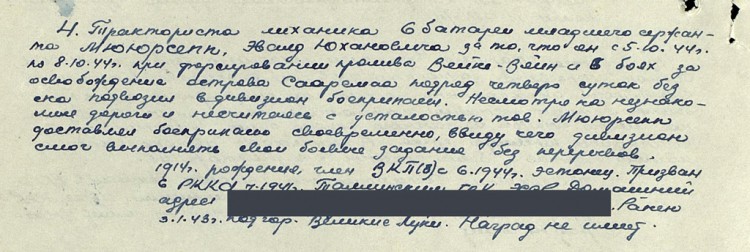 4. Тракториста механика 6 батареи младшего сержан-
та Мююрсепп, Эвалд Юхановича за то, что он с 5-10.44г.
по 8-10.44г. при форсировании пролива Вейке-Вейн и в боях за
освобождение острова Сааремаа подряд четверо суток без
сна подвозил в дивизион боеприпасы. Несмотря на незнако-
мые дороги и несчитаясь с усталостью тов. Мююрсепп
доставлял боеприпасы своевременно, ввиду чего дивизион
смог выполнять свои боевые задание без перерывов.
1914г. рождения, член ВКП(б) с 6.1944г. эстонец. Призван
в РККА 7.1941г. Таллинским ГВК ЭССР. Домашний
адрес Ранен
3.1.43г. под гор. Великие Луки. Наград не имеет.